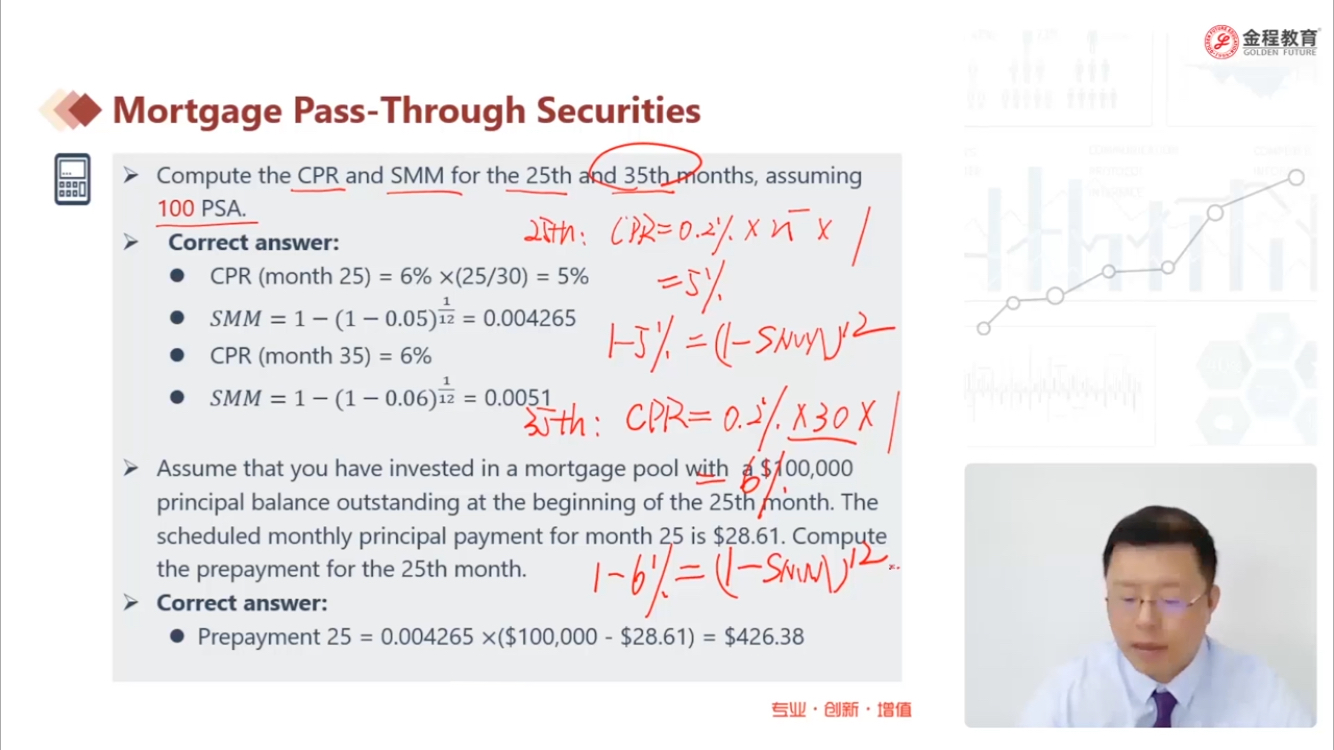 金程教育
GOLDEN FUTURE
Mortgage Pass-Through Securities
Compute the CPR and SMM for the 25th and 35th months, assuming
100 PSA.
25th: CPR=0.2% × 25 × 1
Correct answer:
CPR (month 25) = 6% ×(25/30) = 5%
=5%
SMM = 1 − (1 − 0.05)^{1/12} = 0.004265
1-5% = (1-SMM)^{12}
CPR (month 35) = 6%
SMM = 1 − (1 − 0.06)^{1/12} = 0.0051
35th: CPR= 0.2% ×30 × 1
= 6%
Assume that you have invested in a mortgage pool with a $100,000
principal balance outstanding at the beginning of the 25th month. The
scheduled monthly principal payment for month 25 is $28.61. Compute
the prepayment for the 25th month.
1-6% = (1-SMM)^{12}
Correct answer:
Prepayment 25 = 0.004265 ×($100,000 - $28.61) = $426.38
专业·创新·增值